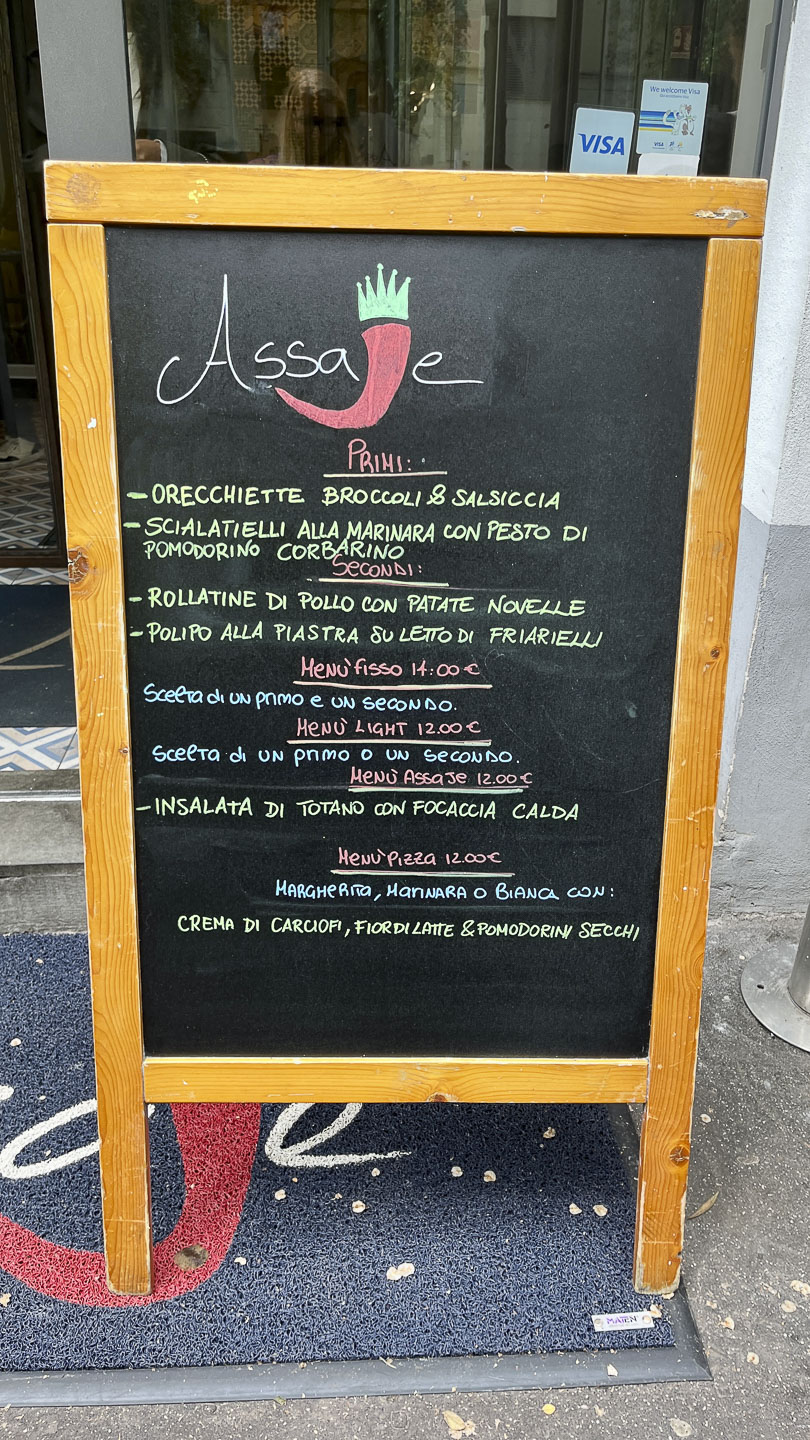 We welcome Visa
VISA
VISA
Assaje
PRIMI:
- ORECCHIETTE BROCCOLI & SALSICCIA
- SCIALATIELLI ALLA MARINARA CON PESTO DI
POMODORINO CORBARINO
SECONDI:
- ROLLATINE DI POLLO CON PATATE NOVELLE
- POLIPO ALLA PIASTRA SU LETTO DI FRIARIELLI
MENÙ FISSO 14:00€
Scelta di un primo e un secondo.
MENÙ LIGHT 12.00€
Scelta di un primo o un secondo.
MENÙ ASSAJE 12.00€
- INSALATA DI TOTANO CON FOCACCIA CALDA
MENÙ PIZZA 12.00€
MARGHERITA, MARINARA O BIANCA CON:
CREMA DI CARCIOFI, FIORDILATTE & POMODORINI SECCHI
je
MATEN